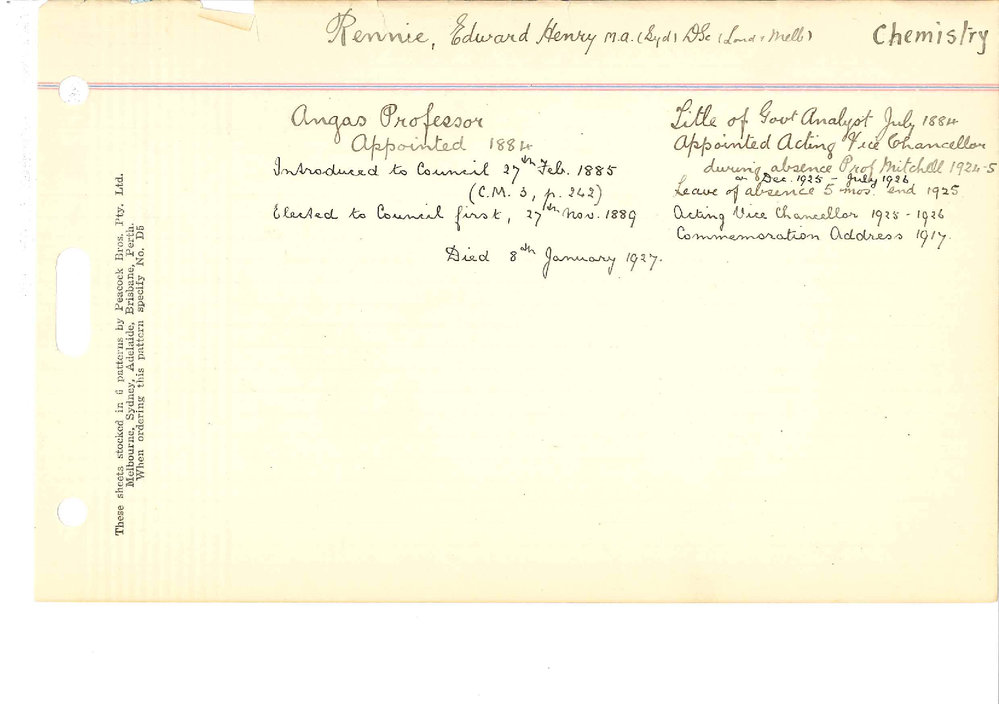 Rennie, Edward Henry M.A. (Syd) DSc (Lond & Melb)
Chemistry
Angas Professor
Appointed 1884
Introduced to Council 27th Feb. 1885
(C.M. 3, p. 242)
Elected to Council first, 27th Nov. 1889
Died 8th January 1927.
Title of Govt Analyst July 1884
Appointed Acting Vice Chancellor
during absence Prof Mitchell 1924-5
Dec. 1925 - July 1926
Leave of absence 5 mos. end 1925
Acting Vice Chancellor 1925 - 1926
Commemoration Address 1917.
These sheets stocked in 6 patterns by Peacock Bros. Pty. Ltd.
Melbourne, Sydney, Adelaide, Brisbane, Perth.
When ordering this pattern specify No. D5